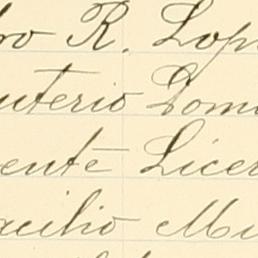 ro R. Lop
uterio Dom
ente Licer
acilio Mu